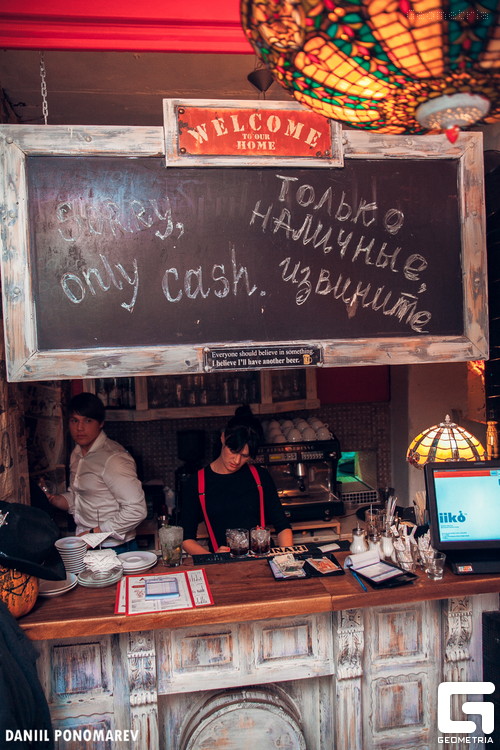 Geometria
WELCOME
TO OUR
HOME
only cash.
ТОЛЬКО
НАЛИЧНЫЕ,
ИЗВИНИТЕ
Everyone should believe in something.
I believe I'll have another beer.
iiko
DANIIL PONOMAREV
GEOMETRIA